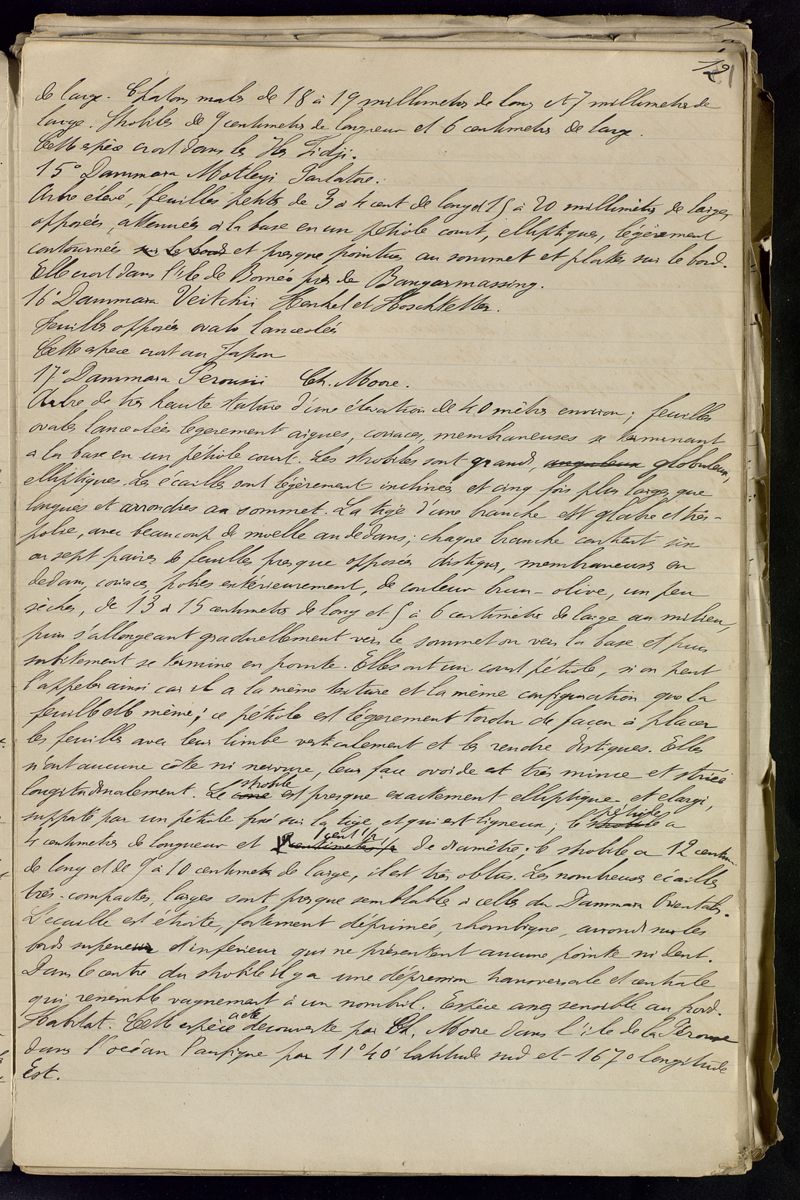 121
de large. Chatons males de 18 à 19 millimetres de long et 7 millimetres de
large. Strobiles de 9 centimetres de longueur et 6 centimetres de large.
Cette espèce croit dans les Iles Fidji.
15° Dammara Motleyi Parlatore.
Arbre élevé, feuilles petites de 3 à 4 cent de long et 15 à 20 millimètres de large,
opposées, attenuées à la base en un pétiole court, elliptiques, légèrement
contournées sur le bord et presque pointues au sommet et plates sur le bord.
Elle croit dans l'ile de Bornéo près de Bangermassing.
16° Dammara Veitchii Henkel et Hoschtetter.
Feuilles opposées ovales lanceolées
Cette espèce croit au Japon
17° Dammara Perousii Ch. Moore.
Arbre de très haute stature d'une élévation de 40 mètres environ; feuilles
ovales lanceolées légèrement aigues, coriaces, membraneuses se terminant
a la base en un pétiole court. Les strobiles sont grands, anguleux globuleux
elliptiques. Les écailles sont légèrement inclinées et cinq fois plus larges que
longues et arrondies au sommet. La tige d'une branche est glabre et très-
polie, avec beaucoup de moelle au dedans; chaque branche contient six
ou sept paires de feuilles presque opposées distiques, membraneuses en
dedans, coriaces, polies extérieurement, de couleur brun-olive, un peu
sèches, de 13 à 15 centimetres de long et 5 à 6 centimètres de large au milieu,
puis s'allongeant graduellement vers le sommet ou vers la base et puis
subitement se termine en pointe. Elles ont un court pétiole, si on peut
l'appeler ainsi car il a la même texture et la même configuration que la
feuille elle même; ce pétiole est légèrement tordu de façon à placer
les feuilles avec leur limbe verticalement et les rendre distiques. Elles
n'ont aucune côte ni nervure, leur face ovoide est très mince et striée
longitudinalement. Le cone strobile est presque exactement elliptique et elargi,
supporté par un pétiole fixé sur la tige et qui est ligneux; le strobile pétiole a
4 centimetres de longueur et centimetres 1/2 1 cent 1/2 de diamètre; le strobile a 12 centim.
de long et de 9 à 10 centimetres de large, il est très obtus. Les nombreuses écailles
très-compactes, larges sont presque semblables à celles du Dammara Orientalis.
L'écaille est étroite, fortement déprimée, rhombique, arrondi sur les
bords superieur et inferieur qui ne présentent aucune pointe ni dent.
Dans le centre du strobile il y a une dépression transversale et centrale
qui ressemble vaguement à un nombril. Espèce assez sensible au froid.
Habitat. Cette espèce a été découverte par Ch. Moore dans l'ile de la Perouse
dans l'océan Pacifique par 11° 40' latitude sud et 167° longitude
Est.